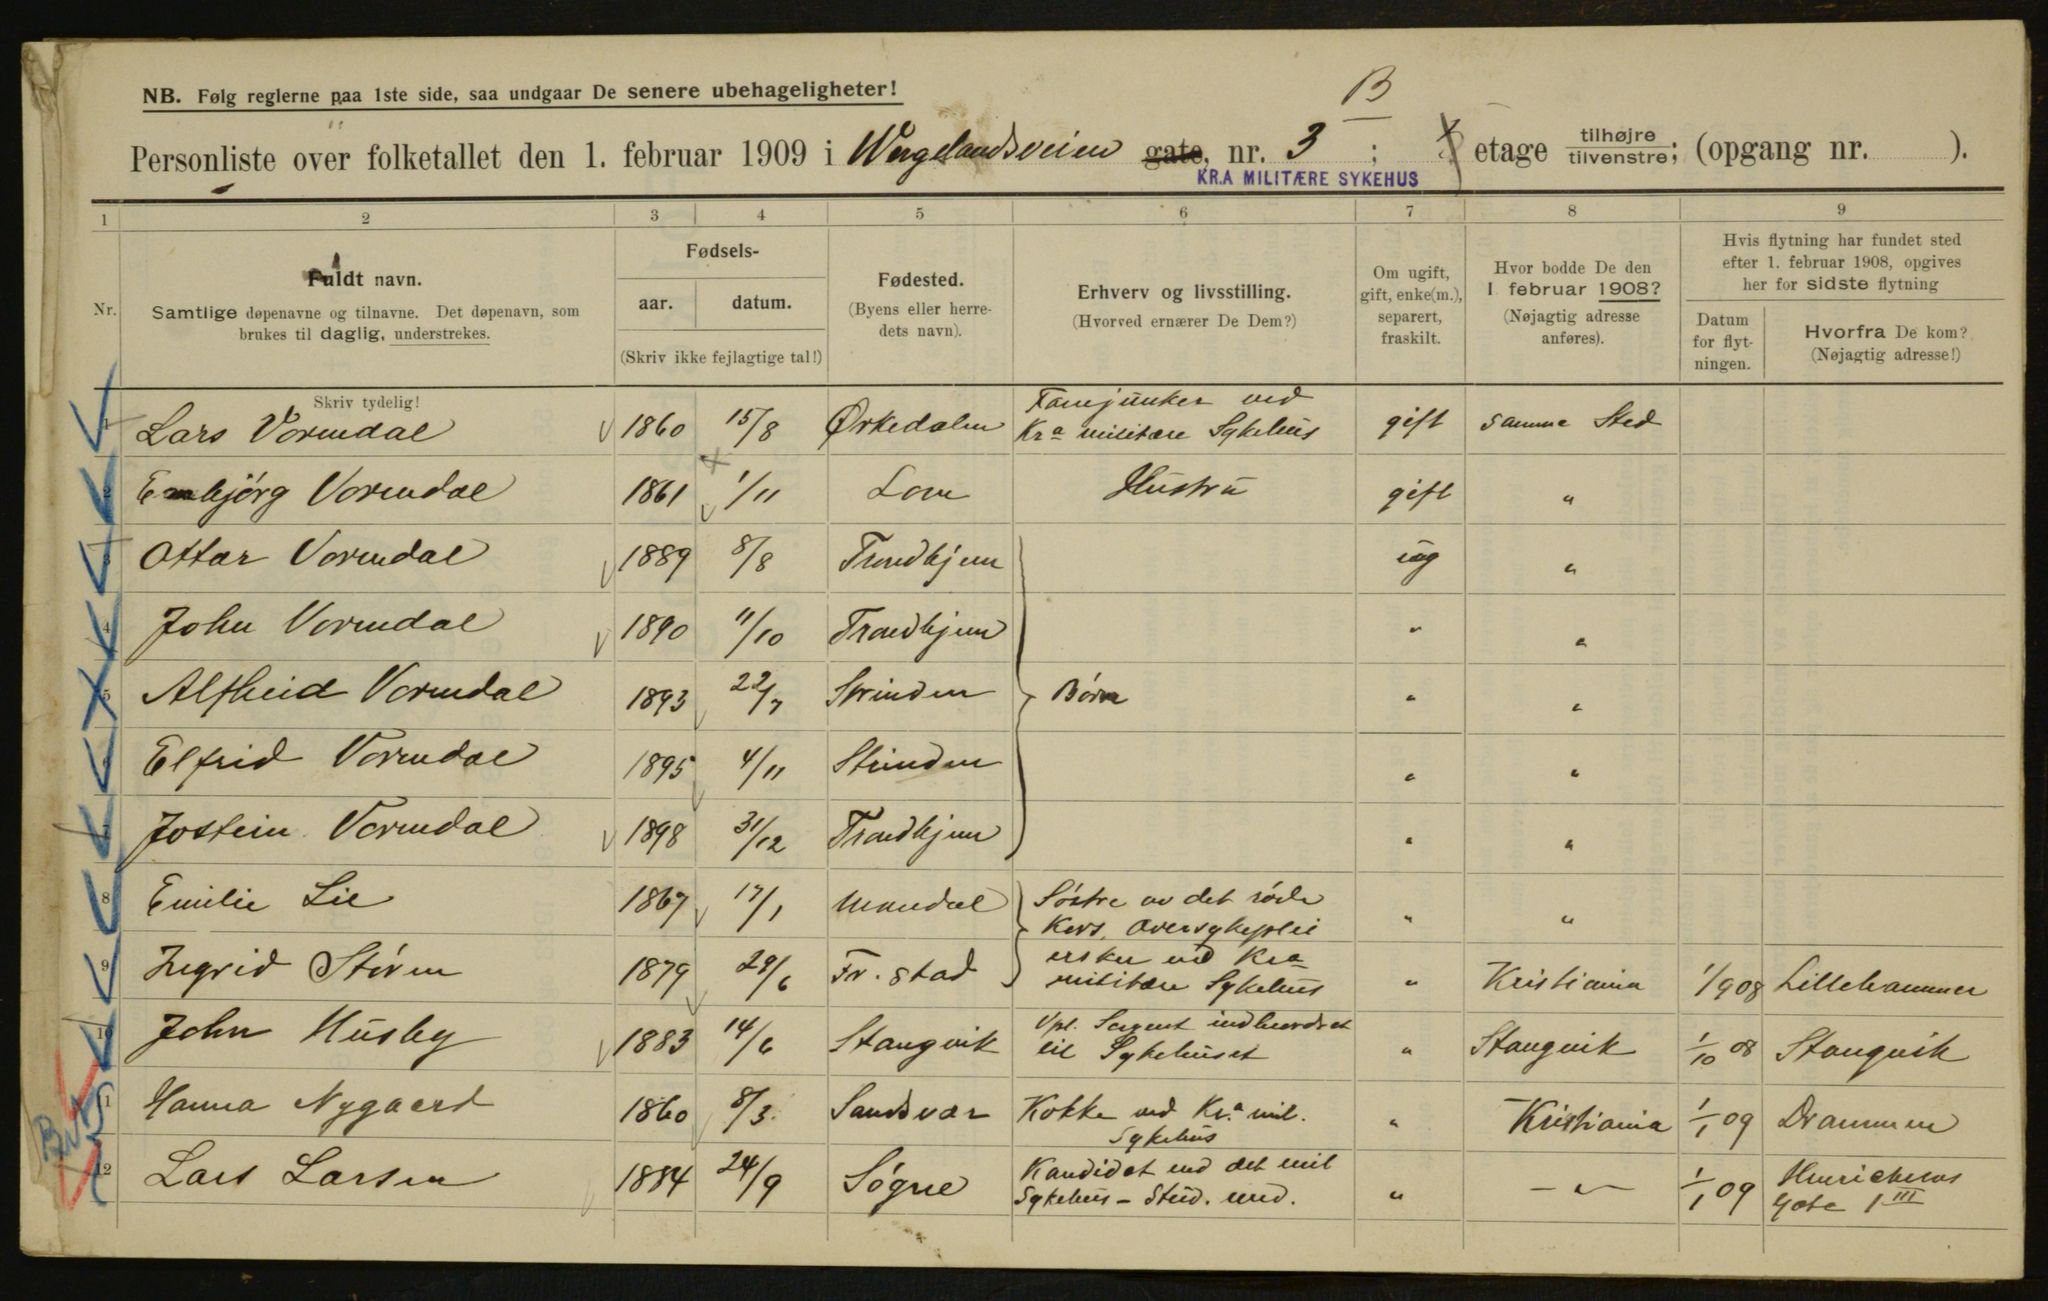 NB. Følg reglerne paa 1ste side, saa undgaar De senere ubehageligheter!
B
Personliste over folketallet den 1. februar 1909 i Wergelandsveien gate, nr. 3 ; etage tilhøjre tilvenstre; (opgang nr. ).
KR.A MILITÆRE SYKEHUS
1 2 3 4 5 6 7 8 9
Nr.
Fuldt navn.
Samtlige døpenavne og tilnavne. Det døpenavn, som
brukes til daglig, understrekes.
Skriv tydelig!
Fødsels-
aar. datum.
(Skriv ikke fejlagtige tal!)
Fødested.
(Byens eller herre-
dets navn).
Erhverv og livsstilling.
(Hvorved ernærer De Dem?)
Om ugift,
gift, enke(m.),
separert,
fraskilt.
Hvor bodde De den
1 februar 1908?
(Nøjagtig adresse
anføres).
Hvis flytning har fundet sted
efter 1. februar 1908, opgives
her for sidste flytning
Datum
for flyt-
ningen.
Hvorfra De kom?
(Nøjagtig adresse!)
1 Lars Vormdal 1860 15/8 Ørkedalen Fanejunker ved
Kra militære Sykehus gift samme Sted
2 Embjørg Vormdal 1861 1/11 Lom Hustru gift "
3 Ottar Vormdal 1889 8/8 Trondhjem ug "
4 John Vormdal 1890 11/10 Trondhjem " "
5 Alfheid Vormdal 1893 22/7 Strinden Børn " "
6 Elfrid Vormdal 1895 4/11 Strinden " "
7 Jostein Vormdal 1898 31/12 Trondhjem " "
8 Emilie Lie 1867 17/1 Mandal Søstre av det røde
Kors, Oversykeplei " "
9 Ingrid Storm 1879 29/6 Fr.stad ersker ved Kra
militære Sykehus " Kristiania 1/9 08 Lillehammer
10 John Husby 1883 14/6 Stangvik Vpl. Sergent indbeordret
til Sykehuset " Stangvik 1/10 08 Stangvik
11 Hanna Nygaard 1860 8/3 Sandsvær Kokke ved Kr.a mil.
Sykehus " Kristiania 1/1 09 Drammen
12 Lars Larsen 1884 24/9 Søgne Kandidat ved det mil
Sykehus - Stud. med. " - " - 1/1 09 Henrichsens
Gate 1 III